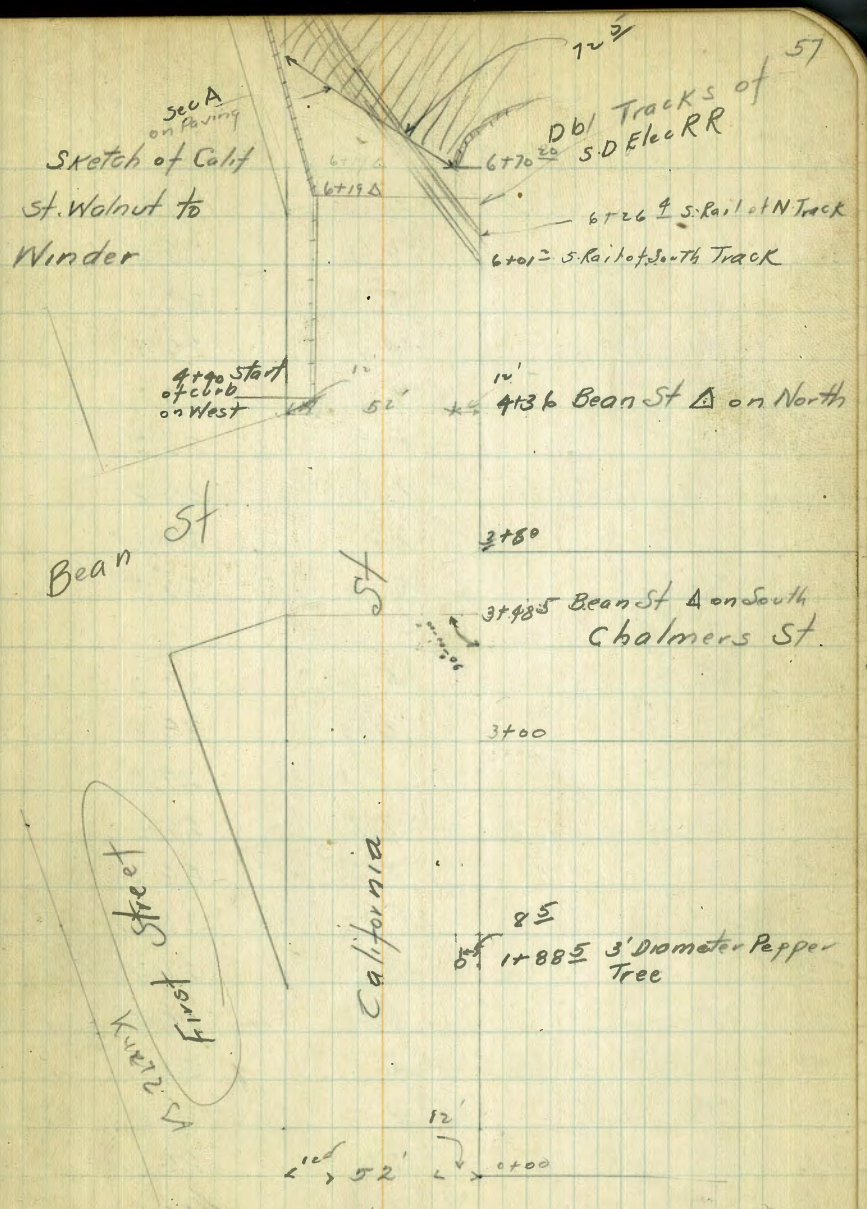 57
12 5/
Sec A
on Paving
Dbl Tracks of
S.D Elec RR
Sketch of Calif
St. Walnut to
Winder
6+70 20
6+19 Δ
6+26 4 S. Rail of N Track
6+01 = S. Rail of South Track
4+40 Start
of curb
on West
12'
52'
12'
4+36 Bean St Δ on North
Bean St
3+80
3+48 5 Bean St Δ on South
Chalmers St.
3+00
California St
First Street
Kurtz St
8 5
1+88 5 3' Diameter Pepper
Tree
12'
12'
52'
0+00